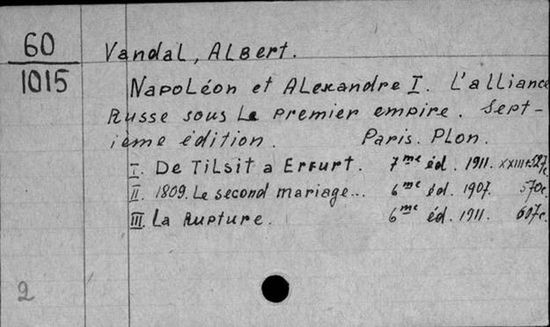 60
1015
Vandal, Albert.
Napoléon et Alexandre I. L'alliance
Russe sous Le premier empire. Sept-
ième édition. Paris. Plon.
I. De Tilsit a Erfurt. 7me éd. 1911. XXIII+527c.
II. 1809. Le second mariage... 6me éd. 1907. 570c.
III. La Rupture. 6me éd. 1911. 607c.
2